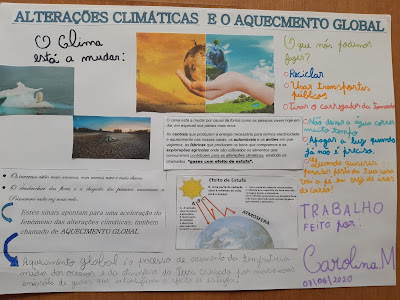 ALTERAÇÕES CLIMÁTICAS E O AQUECMENTO GLOBAL
O Clima
está a mudar:
O que nós podemos
fazer?
Reciclar
Usar transportes
públicos
Tirar o carregador da tomada
Não deixar a água correr
muito tempo
Apagar a luz quando
já não é preciso.
O clima está a mudar por causa da forma como as pessoas vivem hoje em
dia, em especial nos países mais ricos.
As centrais que produzem a energia necessária para termos electricidade
e aquecimento nas nossas casas, os automóveis e os aviões em que
viajamos, as fábricas que produzem os bens que compramos e as
explorações agrícolas onde são cultivados os alimentos que
consumimos contribuem para as alterações climáticas, emitindo os
chamados "gases com efeito de estufa".
Estes sinais apontam para uma aceleração do
fenómeno das alterações climáticas, também
chamado de AQUECIMENTO GLOBAL
Efeito de Estufa
ATMOSFERA
Aquecimento global é o processo de aumento da temperatura
média dos oceanos e da atmosfera da Terra causado por massivas
emissões de gases que intensificam o efeito de estufa.
TRABALHO
FEITO por:
Carolina.M
09/06/2020